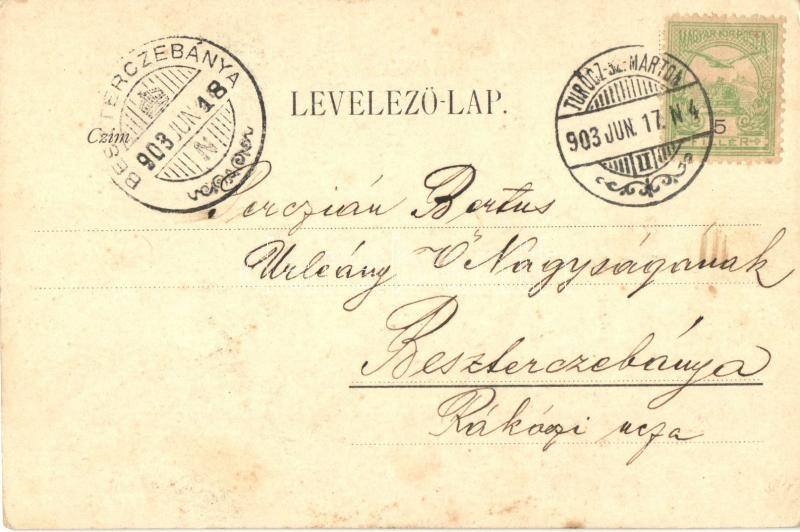 BESZTERCZEBÁNYA
903 JUN. 18
N
LEVELEZŐ-LAP.
Czím
TURÓCZ-SZT-MARTON
903 JUN. 17. N 4
II
MAGYAR KIR. POSTA
5
FILLÉR
Perczián Bertus
Urleány Ő Nagyságának
Beszterczebánya
Rákóczi ucza